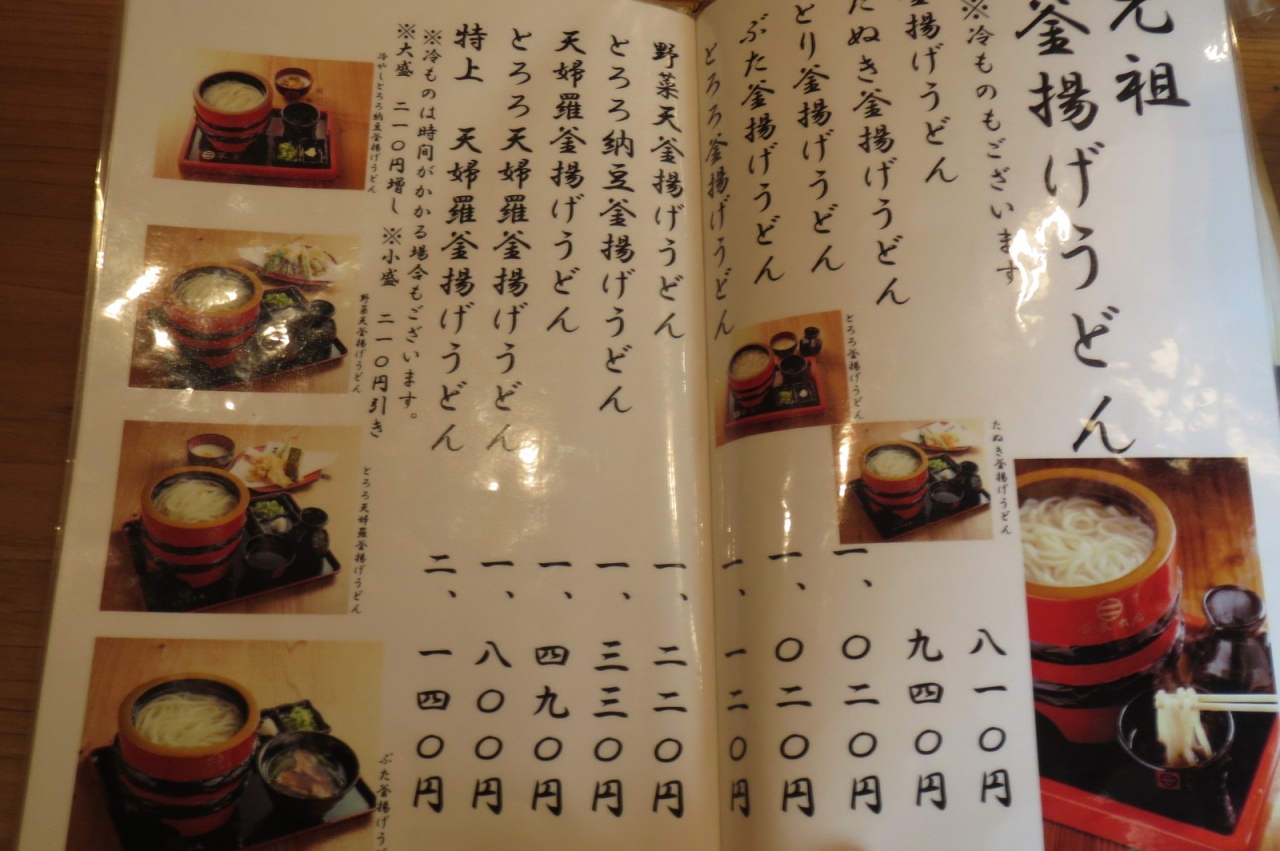 元祖
釜揚げうどん
※冷ものもございます
釜揚げうどん 八一〇円
たぬき釜揚げうどん 九四〇円
とり釜揚げうどん 一、〇二〇円
ぶた釜揚げうどん 一、〇二〇円
とろろ釜揚げうどん 一、一二〇円
野菜天釜揚げうどん 一、二二〇円
とろろ納豆釜揚げうどん 一、三三〇円
天婦羅釜揚げうどん 一、四九〇円
とろろ天婦羅釜揚げうどん 一、八〇〇円
特上 天婦羅釜揚げうどん 二、一四〇円
※冷ものは時間がかかる場合もございます。
※大盛 二一〇円増し ※小盛 二一〇円引き
たぬき釜揚げうどん
とろろ釜揚げうどん
冷やしとろろ納豆釜揚げうどん
野菜天釜揚げうどん
とろろ天婦羅釜揚げうどん
ぶた釜揚げう